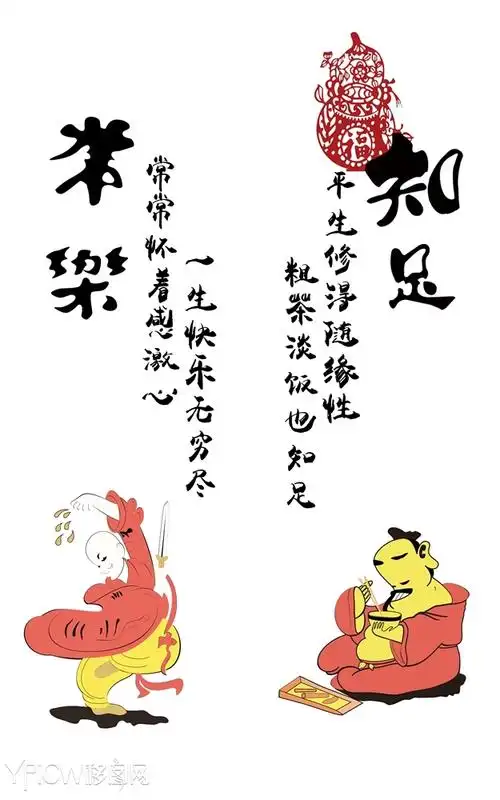 福
知足
平生修得随缘性
粗茶淡饭也知足
常樂
常常怀着感激心
一生快乐无穷尽